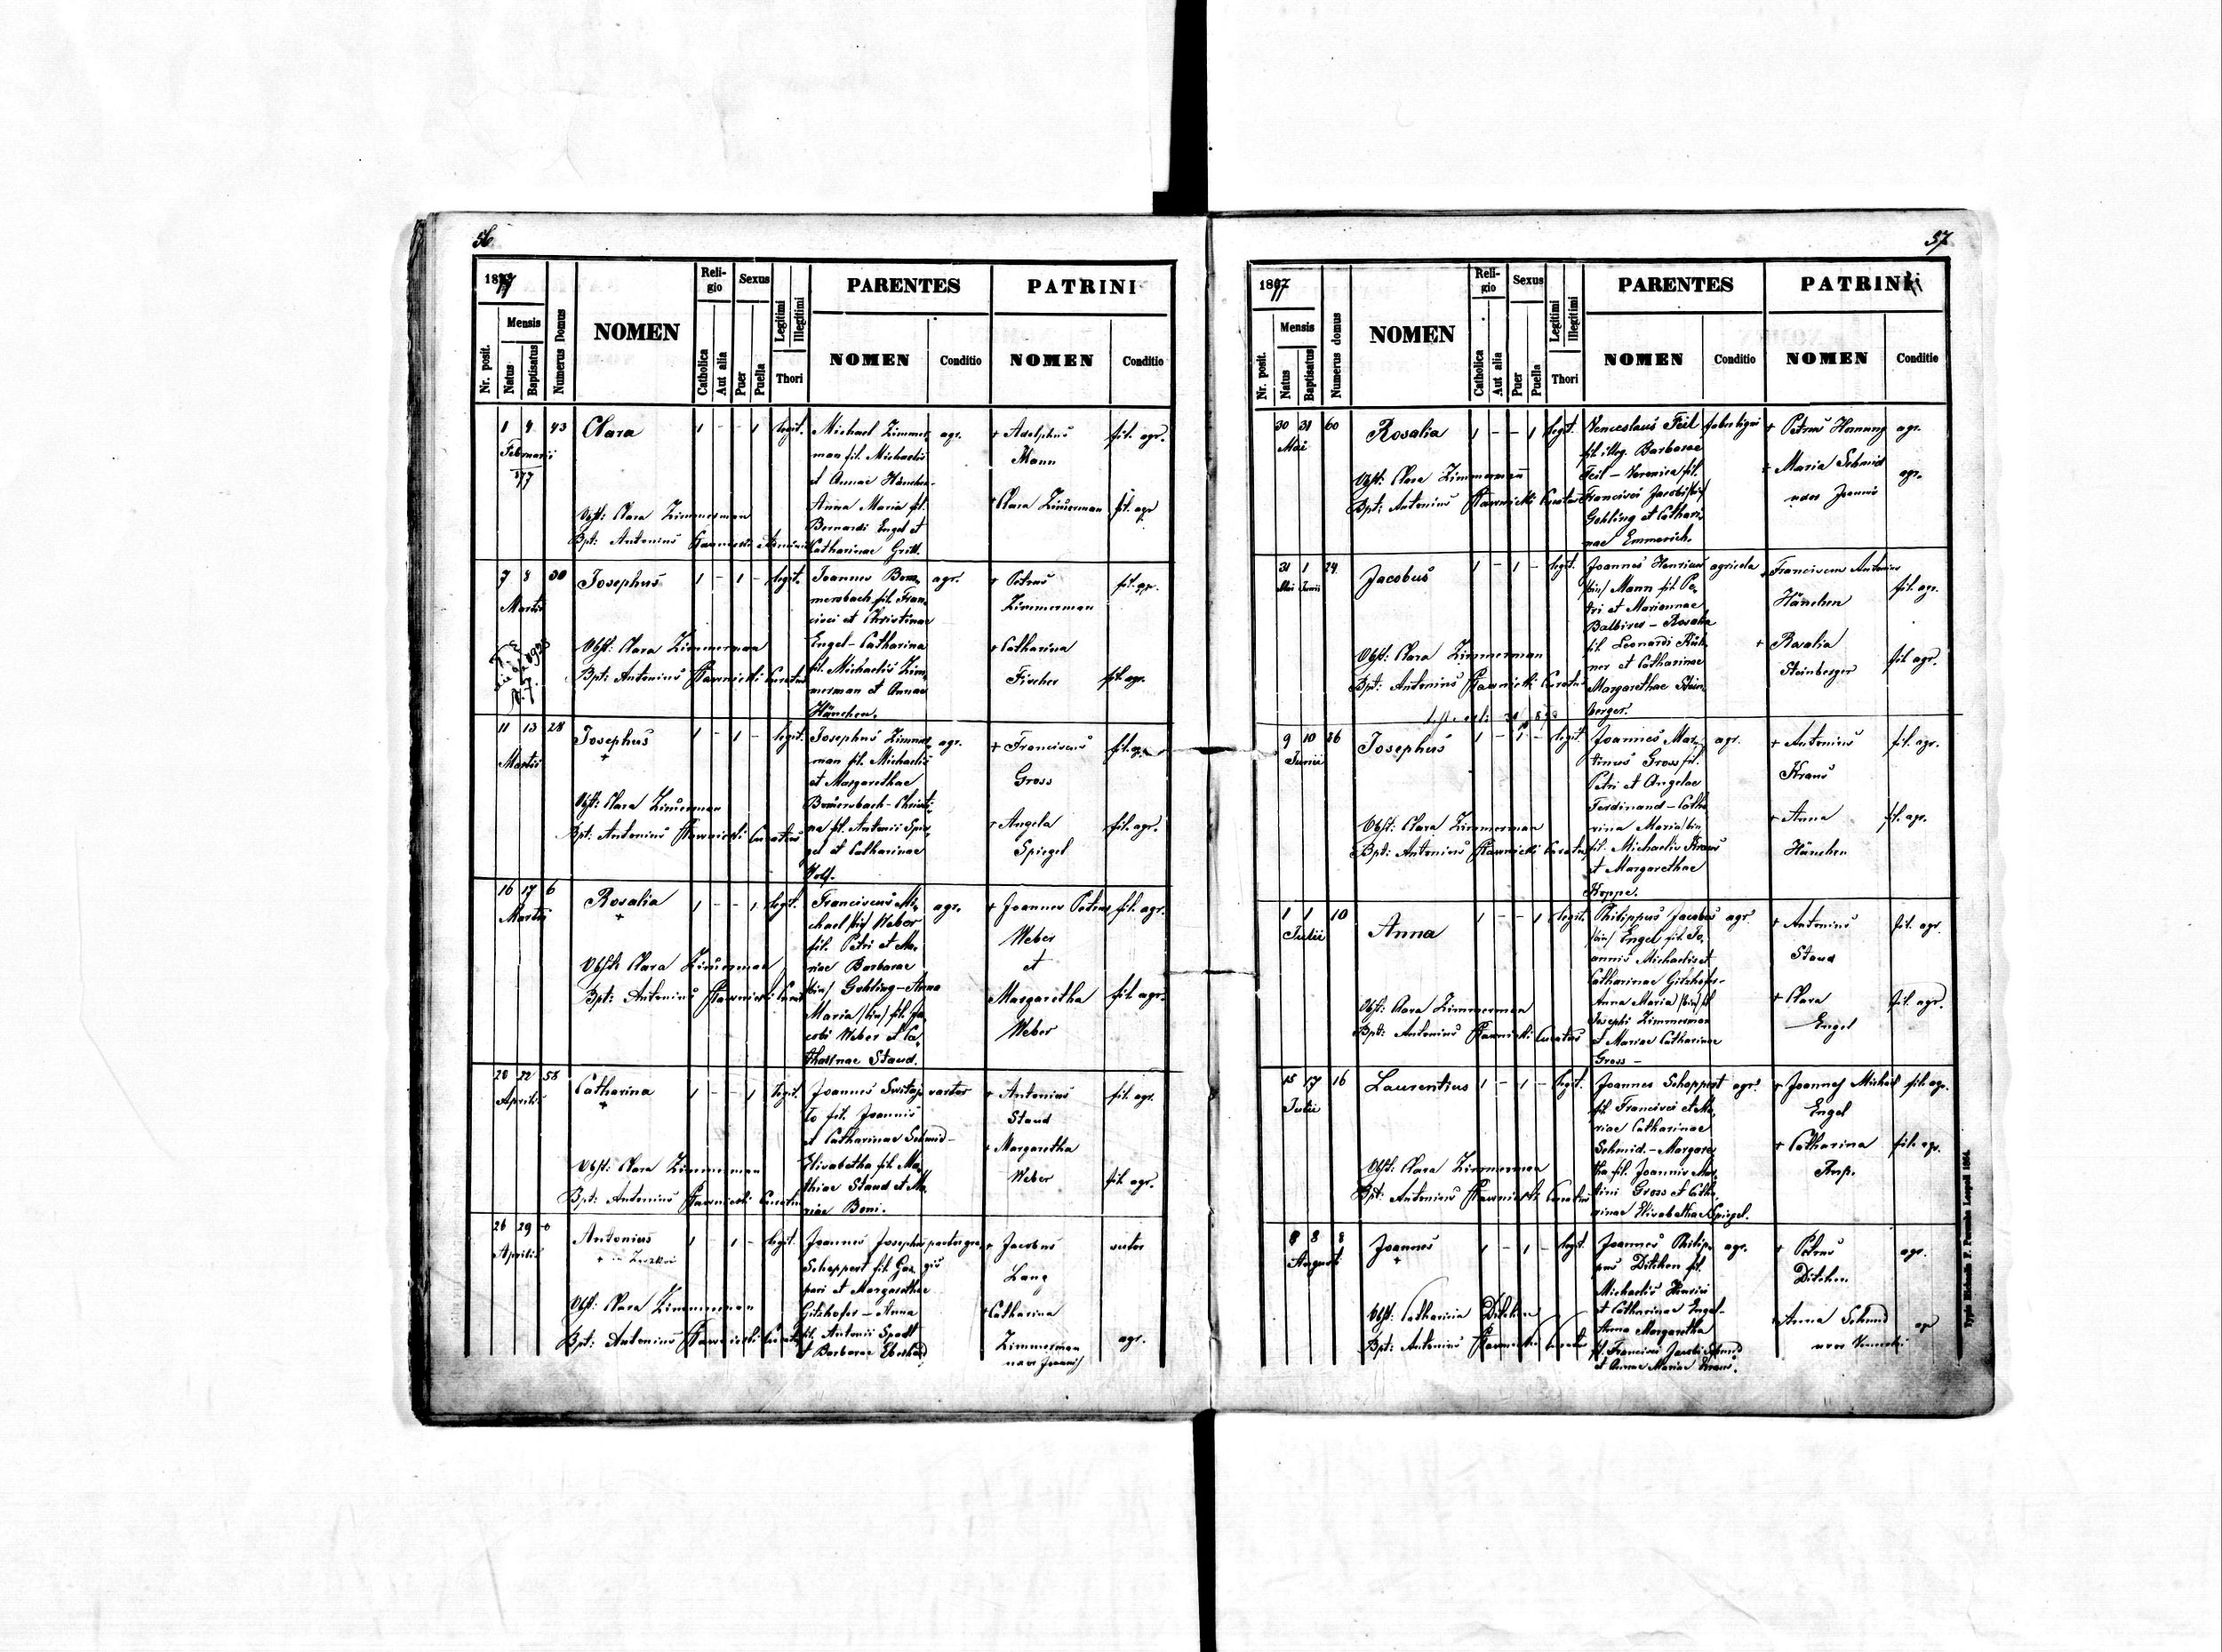 56
1877
Nr. posit.
Mensis
Natus
Baptisatus
Numerus Domus
NOMEN
Reli-
gio
Catholica
Aut alia
Sexus
Puer
Puella
Legitimi
Illegitimi
Thori
PARENTES
NOMEN
Conditio
PATRINI
NOMEN
Conditio
1 4 43
Februarii
877
Clara
1 - - 1 legit.
Obst: Clara Zimmerman
Bpt: Antonius
Michael Zimmer-
man fil. Michaelis
et Annae Hänchen-
Anna Maria fil.
Bernardi Engel et
Catharinae Gritt.
agr.
+ Adolphus
Mann
fil. agr.
+ Clara Zimerman
fil. agr
7 8 30
Martii
Josephus
1 - 1 - legit.
Obst: Clara Zimmerman
Bpt: Antonius Curatus
Joannes Bom-
mersbach fil. Fran-
cisci et Christinae
Engel - Catharina
fil. Michaelis Zim-
merman et Annae
Hänchen.
agr.
+ Petrus
Zimmerman
fil. agr.
+ Catharina
Fischer
fil. agr.
11 13 28
Martii
Josephus
+
1 - 1 - legit.
Obst: Clara Zimerman
Bpt: Antonius Curatus
Josephus Zimmer-
man fil. Michaelis
et Margarethae
Bomersbach - Christi-
na fil. Antonii Spie-
gel et Catharinae
Wolf.
agr.
+ Franciscus
Gross
fil. agr.
+ Angela
Spiegel
fil. agr.
16 17 6
Martii
Rosalia
+
1 - - 1 legit.
Obst: Clara Zimerman
Bpt: Antonius
Franciscus Mi-
chael /bin/ Weber
fil. Petri et Ma-
riae Barbarae
/bin/ Gohling - Anna
Maria /bin/ fil. Ja-
cobi Weber et Ca-
tharinae Staud.
agr.
+ Joannes Petrus
Weber
et
fil. agr.
Margaretha
Weber
fil. agr.
20 22 58
Aprilis
Catharina
+
1 - - 1 legit.
Obst: Clara Zimmerman
Bpt: Antonius Curatus
Joannes
fil. Joannis
et Catharinae Schmid -
Elisabetha fil. Ma-
thiae Staud et Ma-
riae Boni.
+ Antonius
Staud
fil. agr.
+ Margaretha
Weber
fil. agr.
26 29
Aprilis
Antonius
+ in
1 - 1 - legit.
Obst: Clara Zimmerman
Bpt: Antonius
Joannes Josephus
Scheppert fil. Gas-
pari et Margarethae
Gitzhofer - Anna
fil. Antonii Spodt
et Barbarae Eberhard
pastor gre-
gis
+ Jacobus
Lang
sutor
+ Catharina
Zimmerman
uxor Joannis
agr.
57
1877
Nr. posit.
Mensis
Natus
Baptisatus
Numerus domus
NOMEN
Reli-
gio
Catholica
Aut alia
Sexus
Puer
Puella
Legitimi
Illegitimi
Thori
PARENTES
NOMEN
Conditio
PATRINI
NOMEN
Conditio
30 31 60
Mai
Rosalia
1 - - 1 legit.
Obst: Clara Zimmerman
Bpt: Antonius Curatus
Venceslaus Feil
fil. illeg. Barbarae
Feil - Veronica fil.
Francisci Jacobi /bin/
Gohling et Cathari-
nae Emmerich.
+ Petrus Hornung
agr.
+ Maria Schmid
uxor Joannis
agr.
31 1 24
Mai Junii
Jacobus
1 - 1 - legit.
Obst: Clara Zimmerman
Bpt: Antonius Curatus
Joannes Henricus
/bin/ Mann fil. Pe-
tri et Mariannae
Balbires - Rosalia
fil. Leonardi
ner et Catharinae
Margarethae Stein-
berger.
agricola
+ Franciscus Antonius
Hänchen
fil. agr.
+ Rosalia
Steinberger
fil. agr.
9 10 26
Junii
Josephus
1 - 1 - legit.
Obst: Clara Zimmerman
Bpt: Antonius Curatus
Joannes Mar-
tinus Gross fil.
Petri et Angelae
Ferdinand - Catha-
rina Maria /bin/
fil. Michaelis Kraus
et Margarethae
Koppe.
agr.
+ Antonius
Kraus
fil. agr.
+ Anna
Hänchen
fil. agr.
1 1 10
Julii
Anna
1 - - 1 legit.
Obst: Clara Zimmerman
Bpt: Antonius Curatus
Philippus Jacobus
/bin/ Engel fil. Jo-
annis Michaelis et
Catharinae Gitzhofer -
Anna Maria /bin/ fil
Josephi Zimmerman
et Mariae Catharinae
Gross -
agr.
+ Antonius
Staud
fil. agr.
+ Clara
Engel
fil. agr.
15 17 16
Julii
Laurentius
1 - 1 - legit.
Obst: Clara Zimmerman
Bpt: Antonius Curatus
Joannes Scheppert
fil. Francisci et Ma-
riae Catharinae
Schmid. - Margare-
tha fil. Joannis Mar-
tini Gross et Catha-
rinae Elisabethae Spiegel.
agr.
+ Joannes Michael
Engel
fil. agr.
+ Catharina
fil. agr.
8 8 8
Augusti
Joannes
+
1 - 1 - legit.
Obst: Catharina Ditchen
Bpt: Antonius
Joannes Philip-
pus Ditchen fil.
Michaelis Henrici
et Catharinae Engel -
Anna Margaretha
fil. Francisci Jacobi Schmid
et Annae Mariae Kraus.
agr.
+ Petrus
Ditchen
agr.
+ Anna Schmid
uxor
agr
Typis Michaelis F. Poremba Leopoli 1864.